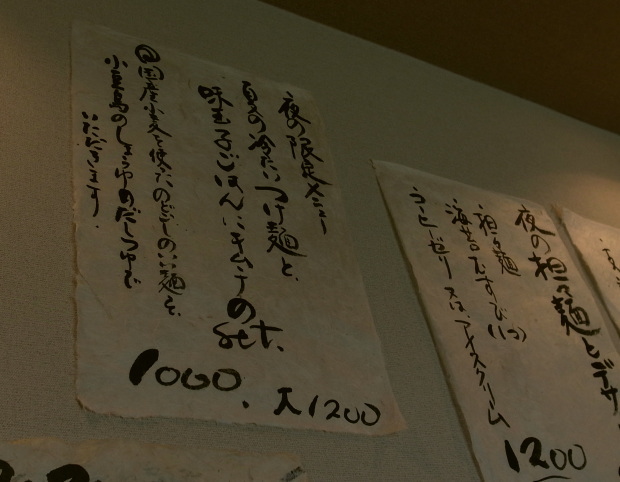 夜の限定メニュー
夏の冷たいつけ麺と、
味玉るごはんにキムチの
set.
1000. 大1200
国産小麦を使ったのどごしのいい麺を、
小豆島のしょうゆのだしつゆで
いただきます。
夜の担々麺とデザ
担々麺
海苔むすび(1コ)
アイスクリーム
1200